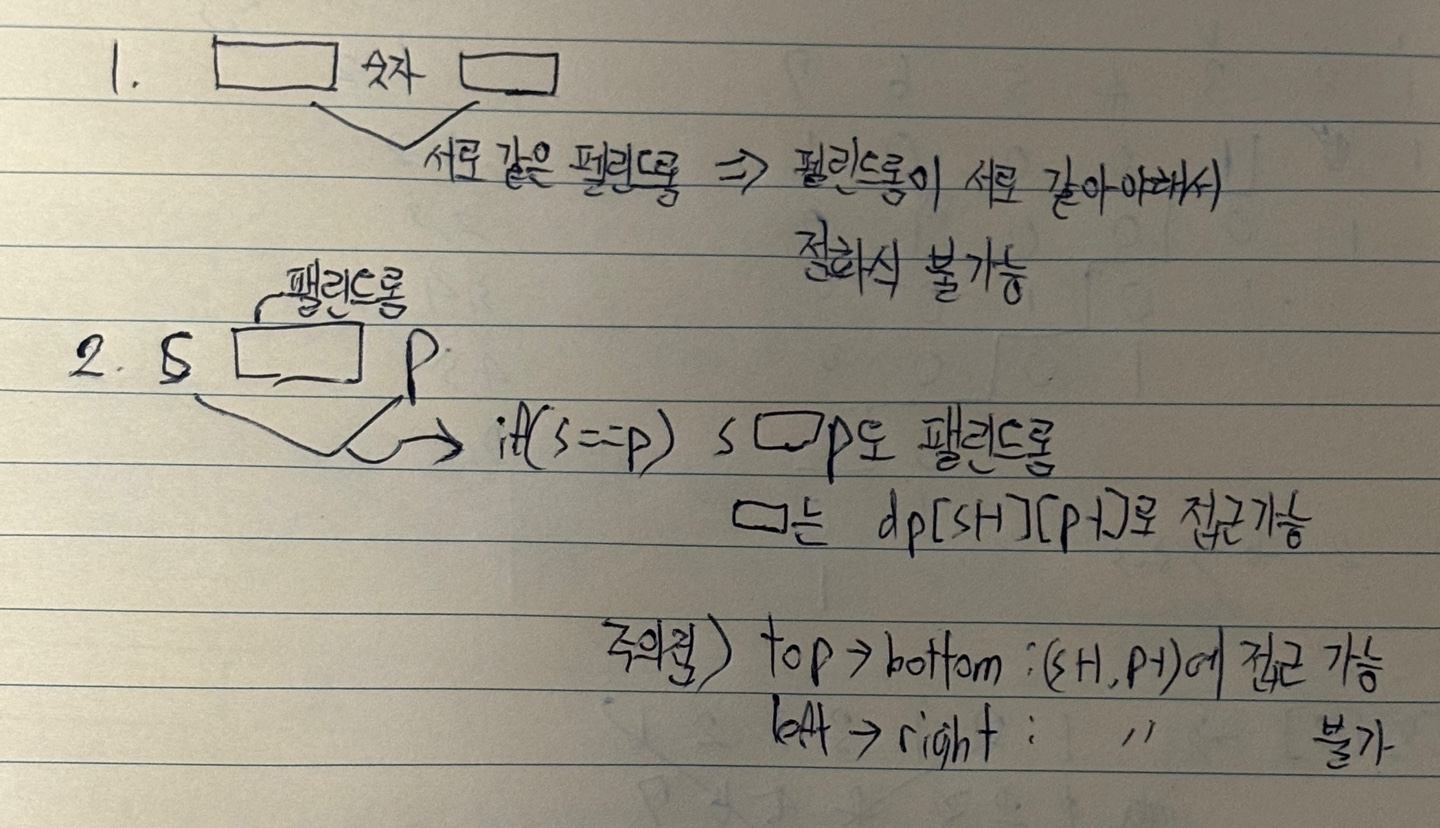 1. 숫자
서로 같은 펠린드롬 => 펠린드롬이 서로 같아야해서
점화식 불가능
팰린드롬
2. S P
if(s==p) s p도 팰린드롬
는 dp[s+1][p-1]로 접근가능
주의점) top → bottom : (s+1, p-1)에 접근 가능
left → right : 〃 불가